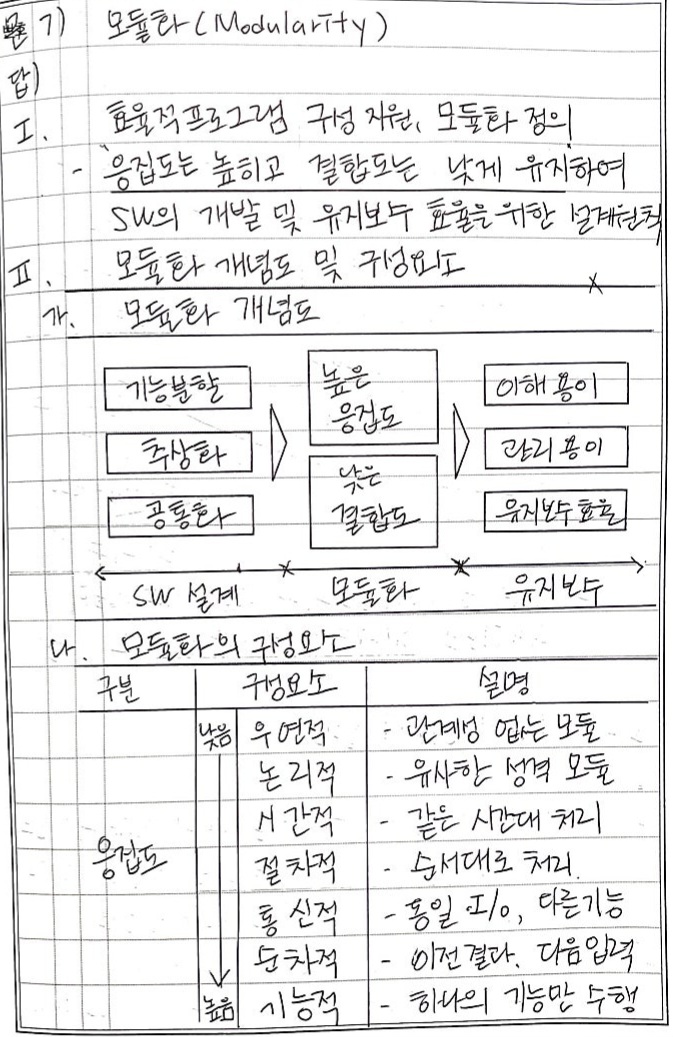 문 7) 모듈화(Modularity)
답)
I. 효율적프로그램 구성 지원, 모듈화 정의
- 응집도는 높히고 결합도는 낮게 유지하여
SW의 개발 및 유지보수 효율을 위한 설계원칙
II. 모듈화 개념도 및 구성요소
가. 모듈화 개념도
기능분할
추상화
공통화
높은
응집도
낮은
결합도
이해 용이
관리 용이
유지보수효율
SW 설계 모듈화 유지보수
나. 모듈화의 구성요소
구분 구성요소 설명
응집도
낮음 우연적 - 관계성 없는 모듈
논리적 - 유사한 성격 모듈
시간적 - 같은 시간대 처리
절차적 - 순서대로 처리.
통신적 - 동일 I/O, 다른기능
순차적 - 이전결과. 다음입력
높음 기능적 - 하나의 기능만 수행